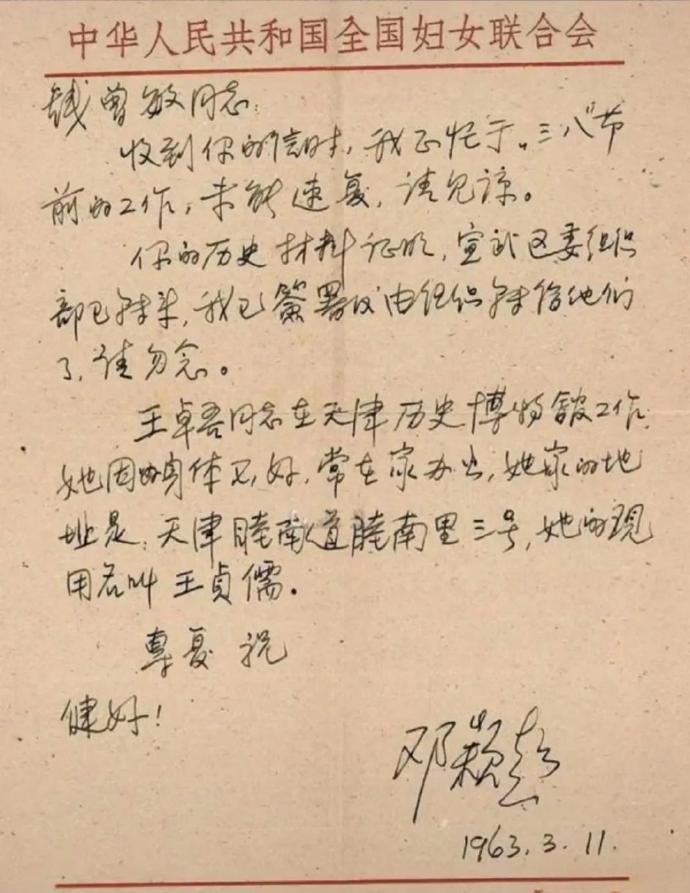 中华人民共和国全国妇女联合会
钱曾敏同志：
收到你的信时，我正忙于“三八”节
前的工作，未能速复，请见谅。
你的历史材料证明，宣武区委组织
部已转来，我已签署后由组织转给他们
了，请勿念。
王卓吾同志在天津历史博物馆工作
她因身体不好，常在家办公，她家的地
址是：天津睦南道睦南里三号，她的现
用名叫王贞儒.
专复 祝
健好！
邓颖超
1963.3.11.